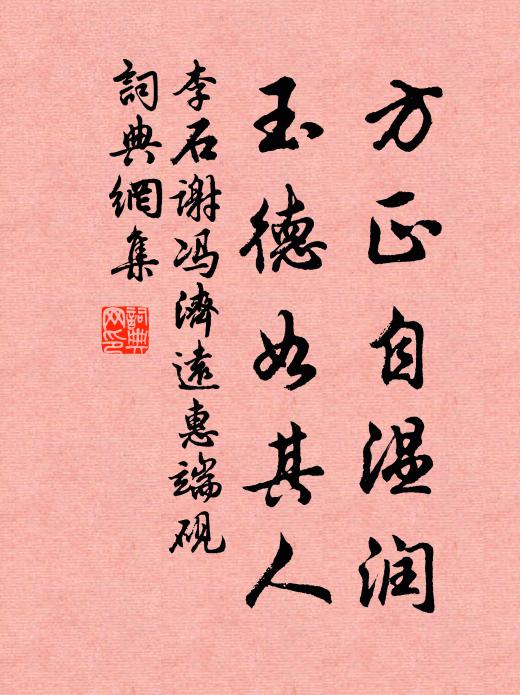 方正自温润
玉德如其人
李石谢冯濟遠惠端硯
詞典網集
詞典网印